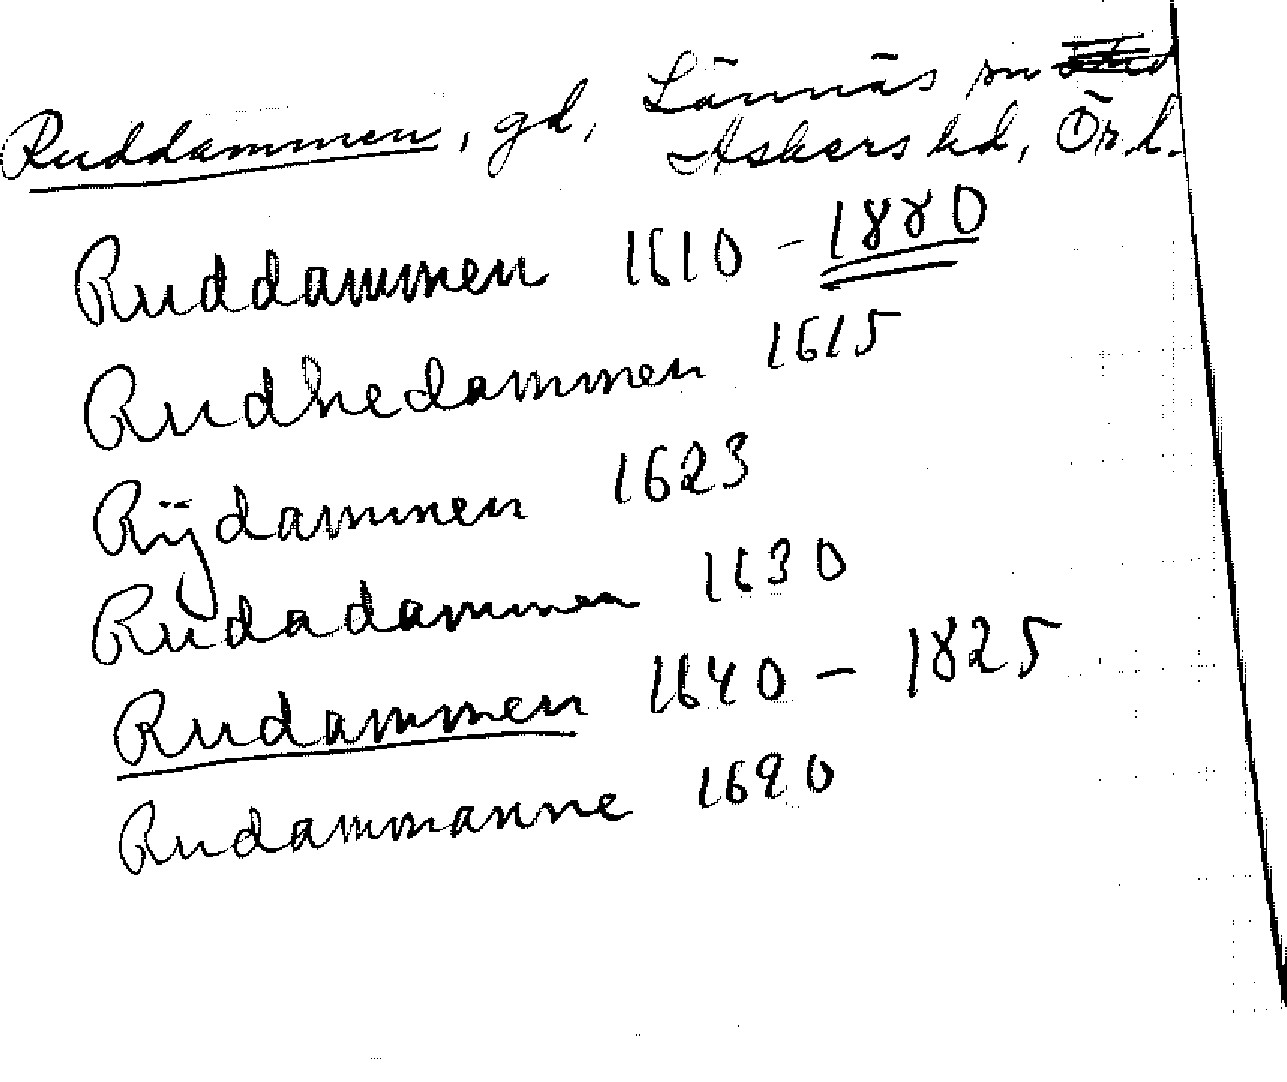 Ruddammen, gd, Lännäs sn
Askers hd, Ör. l.
Ruddammen 1610 - 1880
Rudhedammen 1615
Rijdammen 1623
Rudadammen 1630
Rudammen 1640 - 1825
Rudammanne 1690